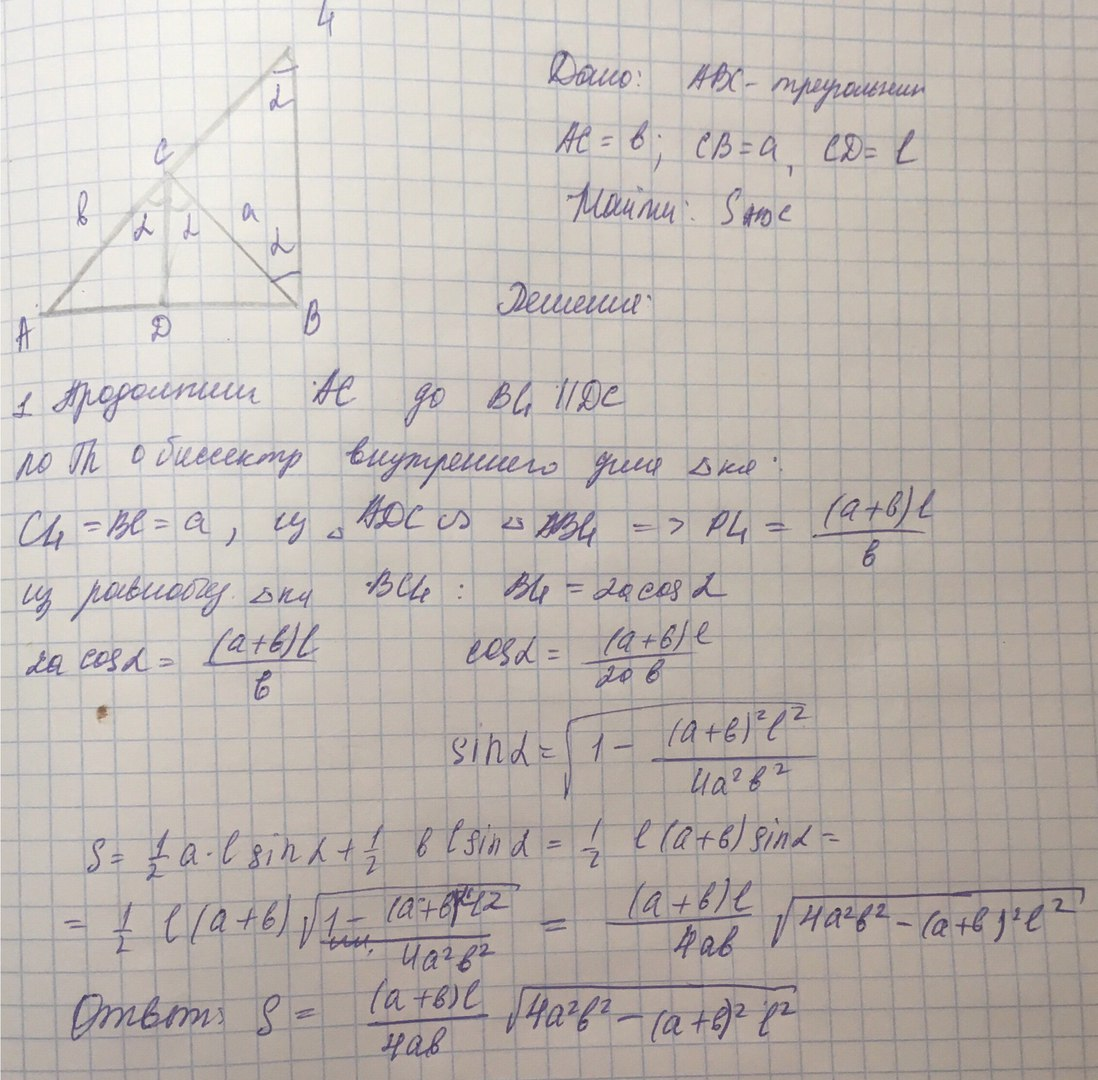 4
C
в
α
α
a
α
α
A
D
B
Дано: ABC - треугольник
AC = в; CB = a, CD = l
Найти: S
Решение:
1 Продолжим AC до B4 || DC
по Th о биссектр внутреннего угла Δка:
C4 = BC = a, из ΔADC ∽ Δ AB4 => P4 = (a+в)l / в
из равнобед. Δка BC4: B4 = 2a cos α
2a cos α = (a+в)l / в cos α = (a+в)l / 2aв
sin α = √(1 - (a+в)²l² / 4a²в²)
S = 1/2 a·l sin α + 1/2 в l sin α = 1/2 l(a+в) sin α =
= 1/2 l(a+в) √(1 - (a+в)²l² / 4a²в²) = (a+в)l / 4aв √(4a²в² - (a+в)²l²)
Ответ: S = (a+в)l / 4aв √(4a²в² - (a+в)²l²)